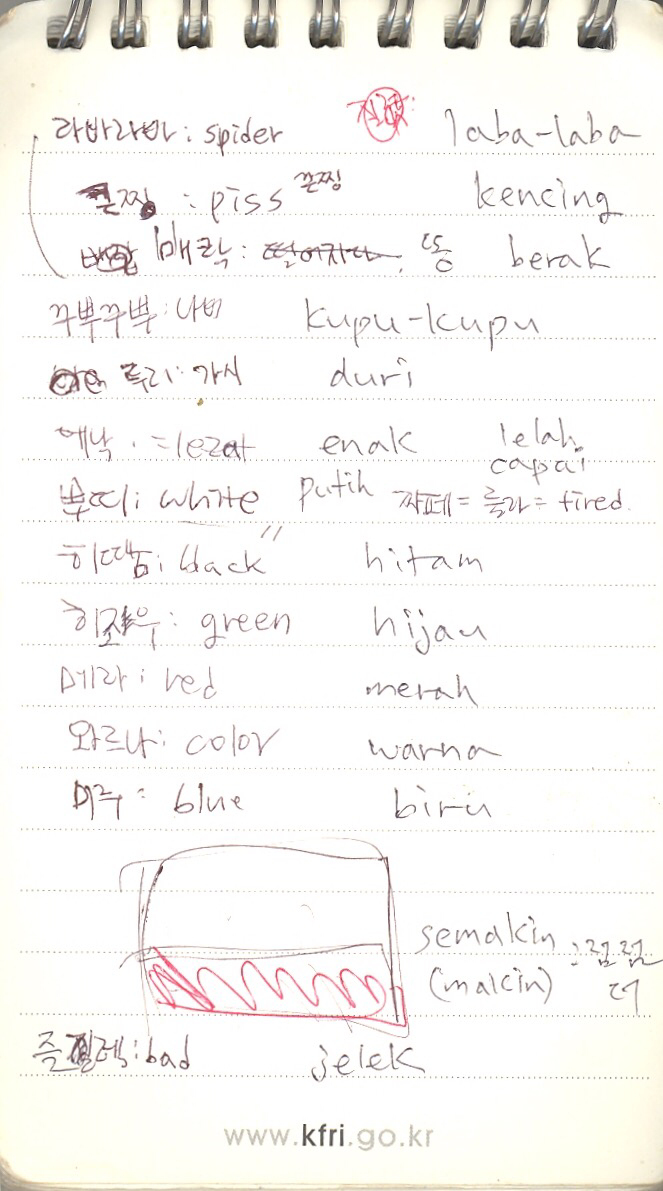 라바라바 : spider laba-laba
끈찡 : piss 끈찡 kencing
배락 : 떨어지다. 똥 berak
꾸뿌꾸뿌 : 나비 kupu-kupu
두리 : 가시 duri
에낙 . = lezat enak lelah
capai
뿌띠 : white putih 짜페 = 를라 = tired.
히땀 : black" hitam
히자우 : green hijau
메라 : red merah
와르나 : color warna
비루 : blue biru
semakin : 점점
(makin) 더
즐렉 : bad jelek
www.kfri.go.kr